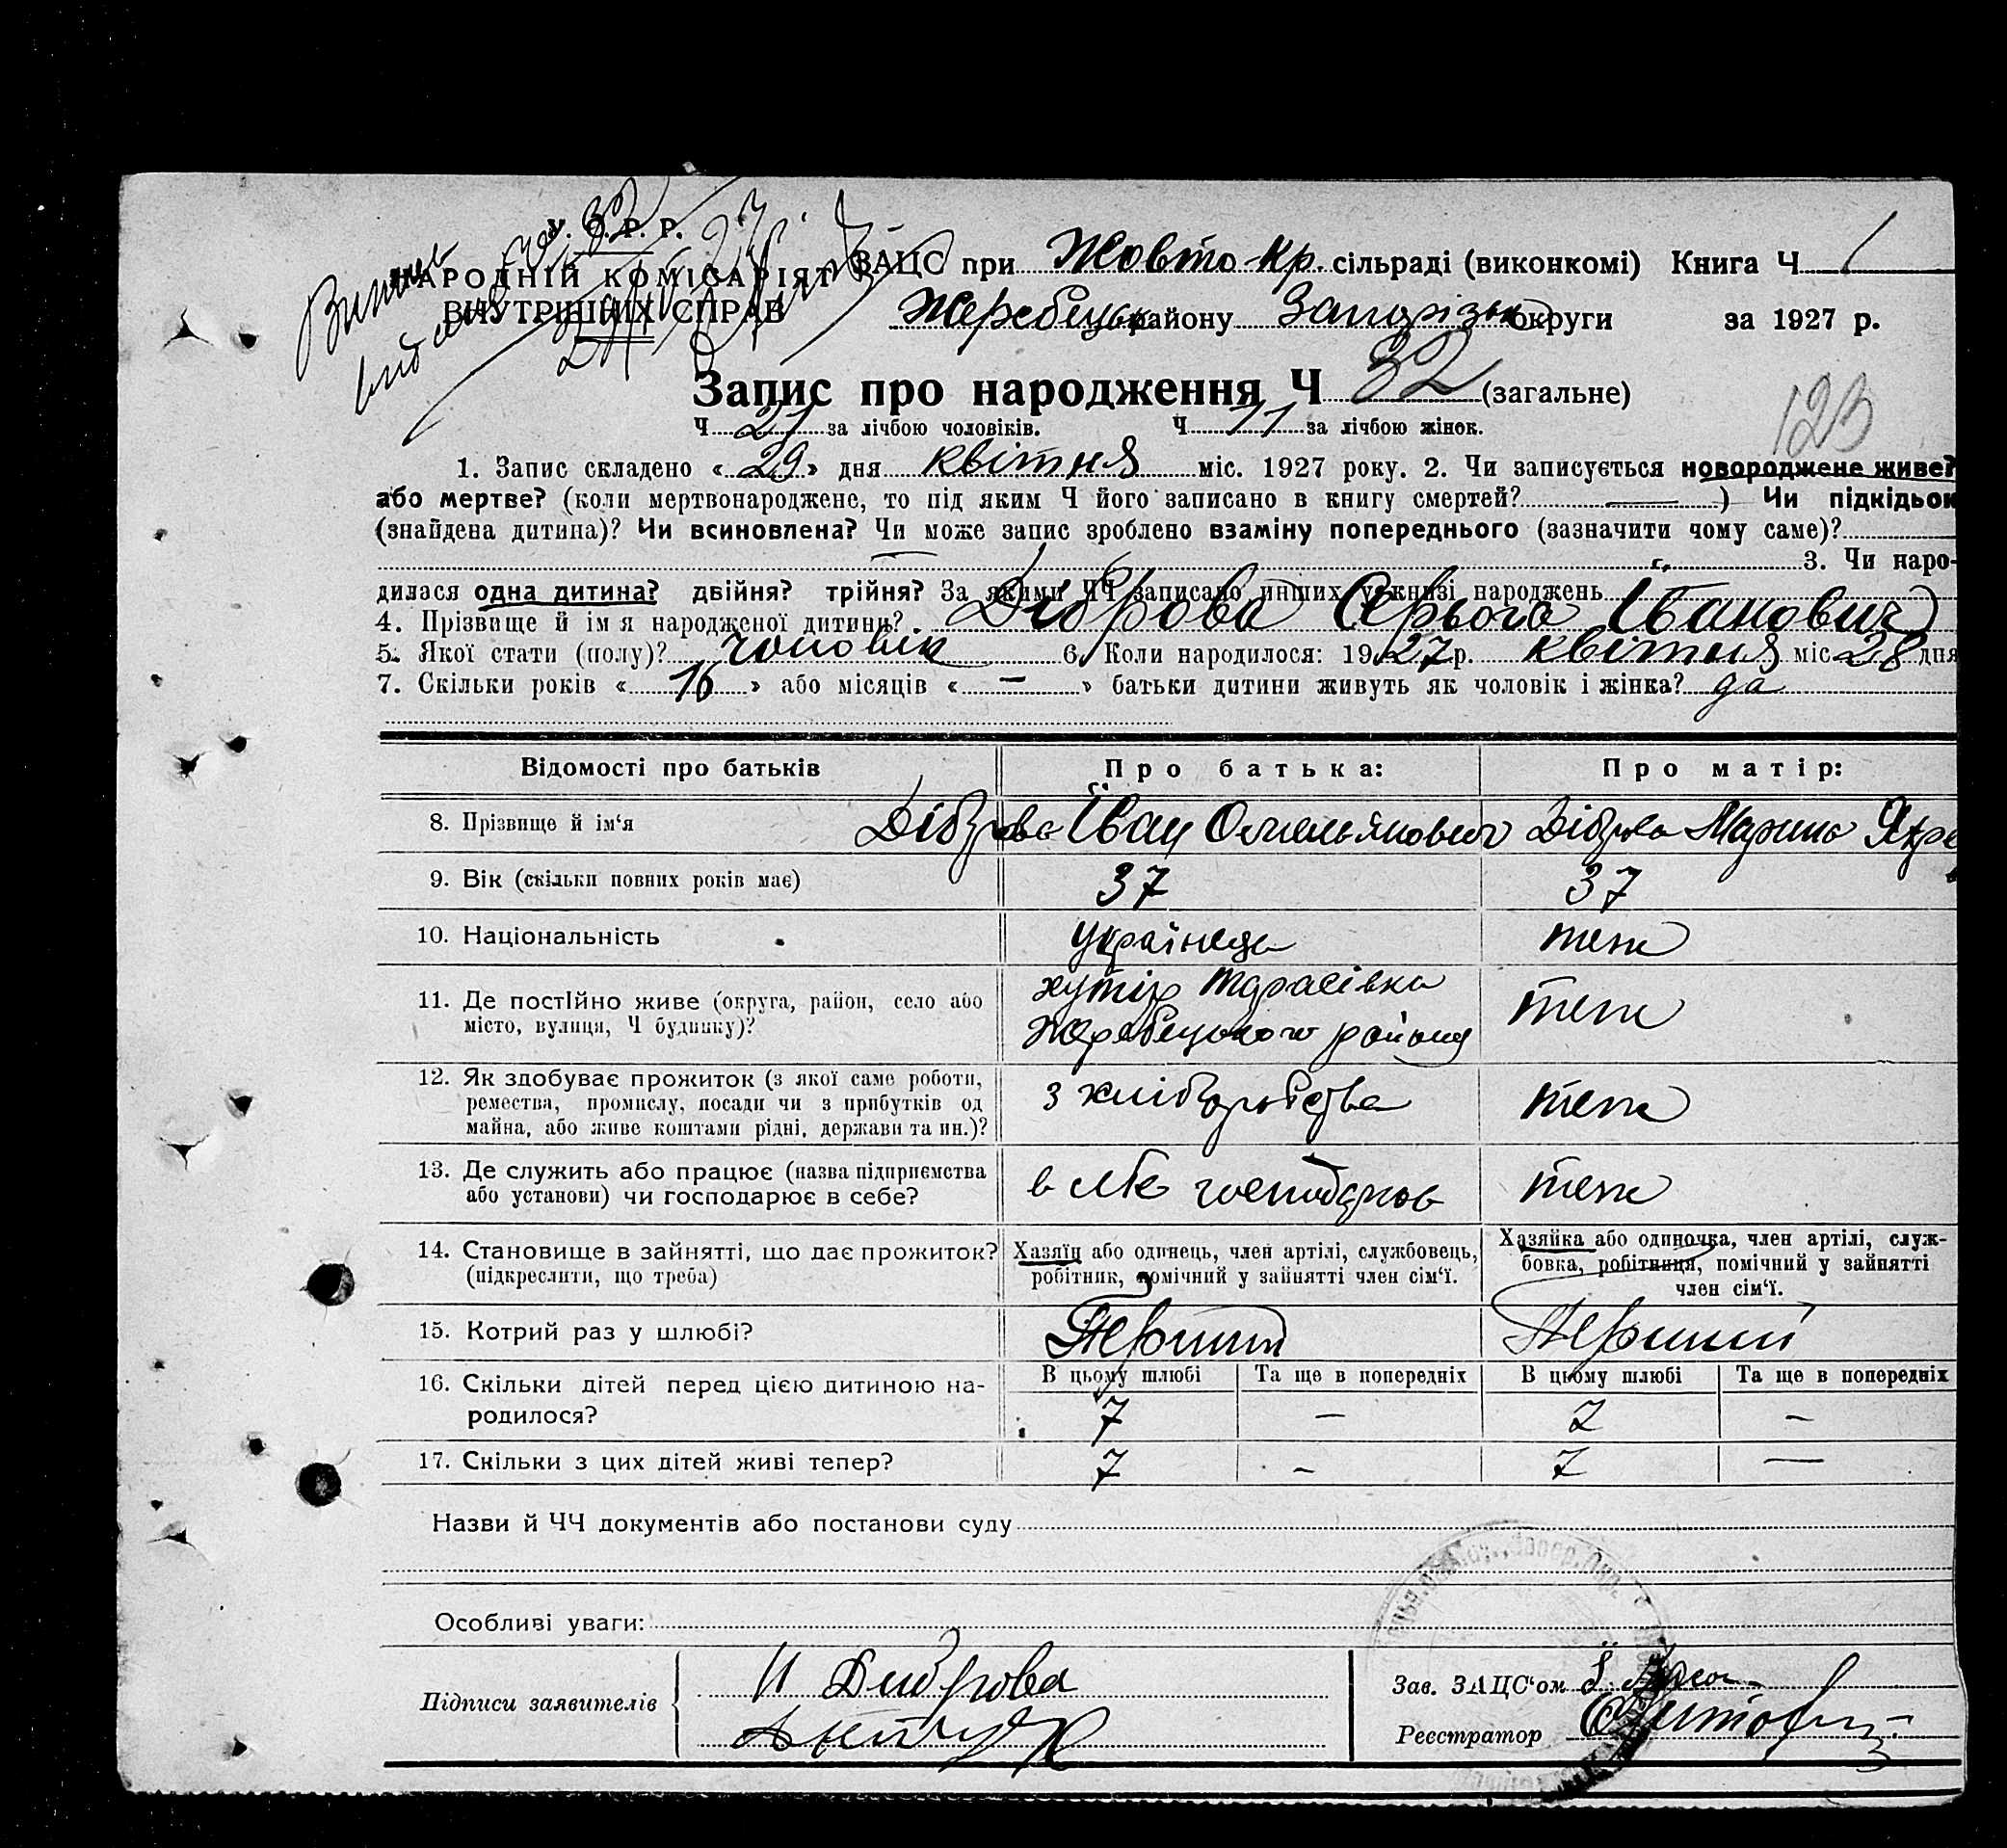 У. С. Р. Р.
НАРОДНІЙ КОМІСАРІЯТ
ВНУТРІШНІХ СПРАВ
32
ЗАЦС при Жовто-кр. сільраді (виконкомі) Книга Ч 1
Жеребецьк району Запорізьк округи за 1927 р.
Запис про народження Ч 32 (загальне)
123
Ч 21 за лічбою чоловіків. Ч 11 за лічбою жінок.
1. Запис складено « 29 » дня квітня міс. 1927 року. 2. Чи записується новороджене живе?
або мертве? (коли мертвонароджене, то під яким Ч його записано в книгу смертей? — ) Чи підкідьок
(знайдена дитина)? Чи всиновлена? Чи може запис зроблено взаміну попереднього (зазначити чому саме)?
3. Чи наро-
дилася одна дитина? двійня? трійня? За якими ЧЧ записано инших у книзі народжень
4. Прізвище й ім'я народженої дитини? Діброва Серьога Іванович
5. Якої стати (полу)? чоловік 6. Коли народилося: 1927 р. квітня міс 28 дня
7. Скільки років « 16 » або місяців « — » батьки дитини живуть як чоловік і жінка? да
Відомості про батьків Про батька: Про матір:
8. Прізвище й ім'я Діброва Іван Омельянович Діброва Марина
9. Вік (скільки повних років має) 37 37
10. Національність українець теж
11. Де постійно живе (округа, район, село або хутір Тарасівка теж
місто, вулиця, Ч будинку)? Жеребецького району
12. Як здобуває прожиток (з якої саме роботи, з хліборобства теж
ремества, промислу, посади чи з прибутків од
майна, або живе коштами рідні, держави та ин.)?
13. Де служить або працює (назва підприємства в себе теж
або установи) чи господарює в себе?
14. Становище в зайнятті, що дає прожиток? Хазяїн або одинець, член артілі, службовець, Хазяйка або одиночка, член артілі, служ-
(підкреслити, що треба) робітник, помічний у зайнятті член сім'ї. бовка, робітниця, помічний у зайнятті
член сім'ї.
15. Котрий раз у шлюбі? Перший Перший
16. Скільки дітей перед цією дитиною на- В цьому шлюбі Та ще в попередніх В цьому шлюбі Та ще в попередніх
родилося? 7 — 7 —
17. Скільки з цих дітей живі тепер? 7 — 7 —
Назви й ЧЧ документів або постанови суду
Особливі уваги:
Підписи заявителів И Диброва
Зав. ЗАЦС'ом
Реєстратор